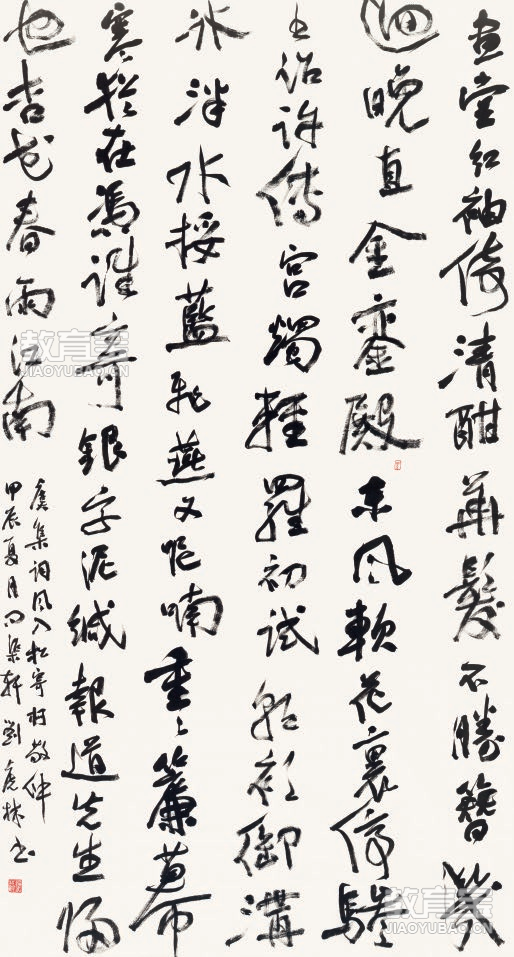 畫堂紅袖倚清酣華髮不勝簪幾
迴晚直金鑾殿東風軟花裏停驂
書詔許傳宮燭輕羅初試朝衫御溝
冰泮水挼藍飛燕又呢喃重〻簾幕
寒猶在馮誰寄銀字泥緘報道先生歸
也杏花春雨江南
虞集詞風入松寄柯敬仲
甲辰夏月問渠軒劉彥林書
教育宝
JIAOYUBAO.CN
教育宝
JIAOYUBAO.CN